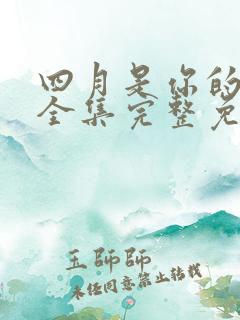 四月是你的
全集完整免
王师师
未经同意禁止转载